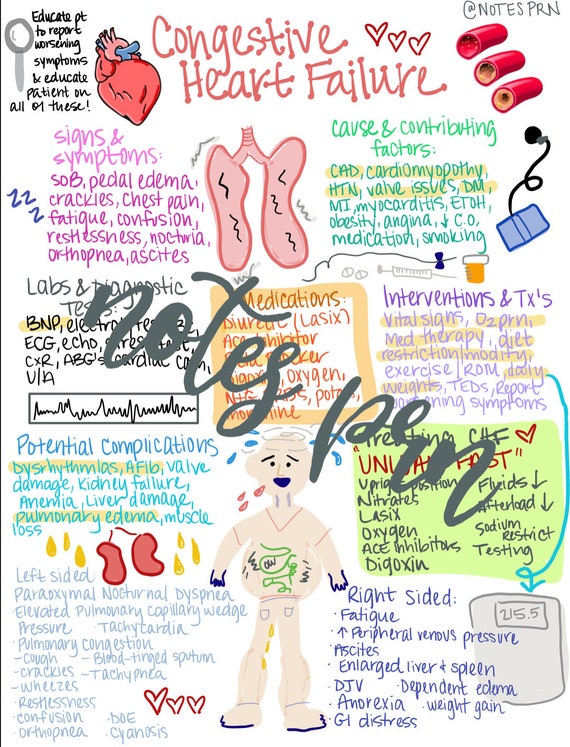 Educate pt
to report
worsening
symptoms
& educate
patient on
all of these!
Congestive
Heart Failure
@NOTESPRN
signs &
symptoms:
SOB, pedal edema,
crackles, chest pain,
fatigue, confusion,
restlessness, nocturia,
orthopnea, ascites
zz
z
cause & contributing
factors:
CAD, cardiomyopathy,
HTN, valve issues, DM,
MI, myocarditis, ETOH,
obesity, angina, ↓ C.O,
medication, smoking
Labs & Diagnostic
Tests:
BNP,
ECG, echo, stress test,
CXR, ABG's, cardiac cath,
U/A
Medications:
Diuretic (Lasix)
Ace inhibitor
Beta blocker
Digoxin, oxygen,
morphine
Interventions & Tx's
vital signs, O2 prn,
Med therapy, diet
restriction/modify,
exercise/ROM, daily
weights, TEDs, Report
worsening symptoms
notes prn
Potential Complications
Dysrhythmias, AFib, valve
damage, kidney failure,
Anemia, Liver damage,
pulmonary edema, muscle
loss
Treating CHF
"UNLOAD FAST"
Upright position
Nitrates
Lasix
Oxygen
ACE inhibitors
Digoxin
Fluids ↓
Afterload ↓
Sodium
Restrict
Testing
OW
215.5
Left sided:
Paraoxymal Nocturnal Dyspnea
Elevated Pulmonary capillary wedge
Pressure · Tachycardia
· Pulmonary congestion
- cough - Blood-tinged sputum
- crackles - Tachypnea
- wheezes
· Restlessness
· confusion · DOE
· orthopnea · Cyanosis
Right Sided:
· Fatigue
· ↑ Peripheral venous pressure
· Ascites
· Enlarged liver & spleen
· DJV · Dependent edema
· Anorexia · weight gain
· GI distress